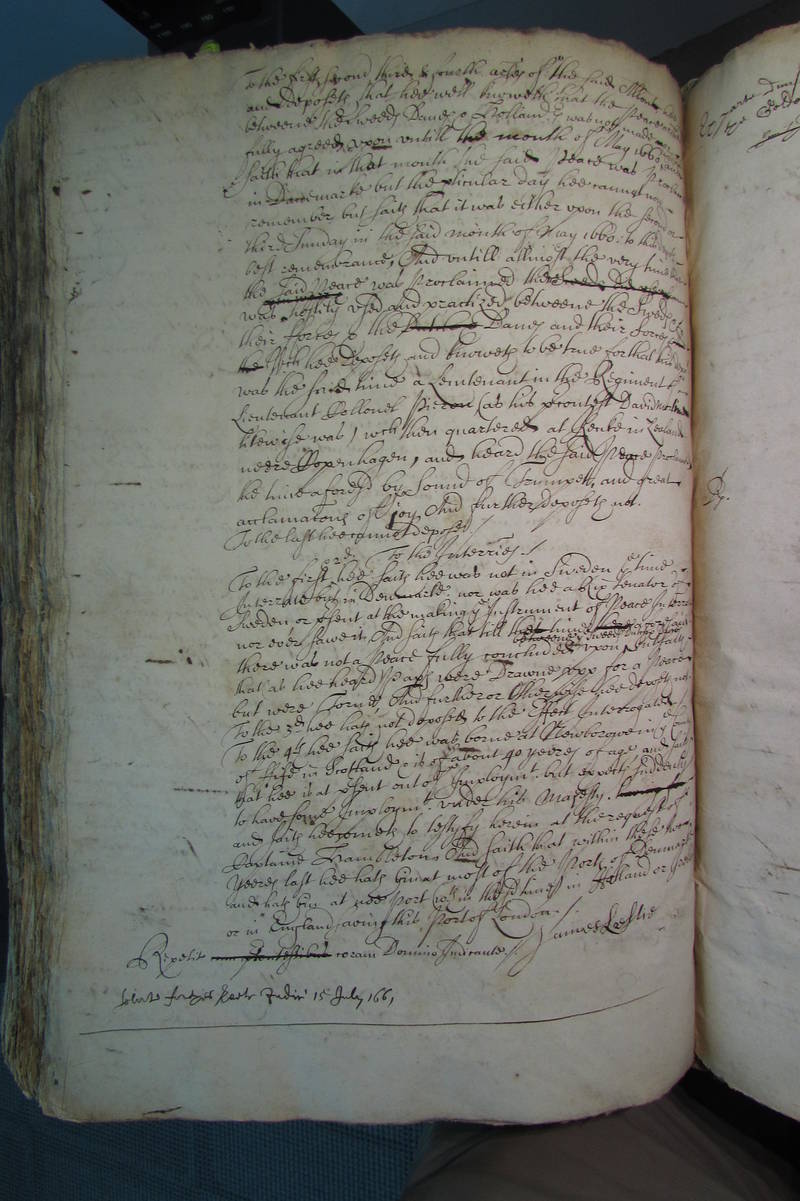 To the first second third & fourth arles of the said Allon hee saith
and deposeth that hee well knoweth that the Peace
betweene the Sweeds Danes & Hollanders was not made
fully agreed upon untill the month of May 1660, and
saith that in that month the said Peace was Proclaimed
in Denmarke but the pticular day hee cannot now
remember but saith that it was either upon the second or
third Sunday in the said month of May 1660. to this depts
best remembrance, And untill allmost the very time that
the said Peace was Proclaimed there
was hostility used and practized betweene the Sweds &
their forces & the Danes and their forces
the wch hee deposeth and knoweth to be true for that hee
was the said time a Leiutenant in the Regiment of
Lieutenant Collonel (as his precontest David
likewise was) wch then quartered at in Zealand
neere Copenhagen, and heard the said Peace Proclaimed
the time aforesd by Sound of Trumpett, and great
acclamations of joy, And further deposeth not.
To the last hee cannot depose /
To the Interries. /
To the first hee saith hee was not in Sweden ye time
Interrate but in Denmarke. nor was hee a Rix Senator of
Sweden or psent at the making ye Instrument of Peace Interrate
nor ever saw it, And saith that till the time aforesaid
betweene ye Sweeds Danes
there was not a Peace fully concluded upon, But saith
that as hee heard Papers were Drawne upp for a Peace
but were torne, And further or otherwise hee deposeth not
To the 3d hee hath not deposed to the Effect Interrogated
To the 4th hee saith hee was borne at Newborgoe in ye County
of Fife in Scotland & is of about 40 yeeres of age and saith
that hee is at psent out of Imploymt. but expects suddenly
to have some Imploymt. under his Majesty.
and saith hee cometh to testify herein at the request of
Captaine Hambletons And saith that within these two
yeeres last hee hath bin at most of the Ports of Denmark
and hath bin at noe Port wth in the sd time in Holland or
or in England saving this Port of London. /
James Leslie
Repetit coram Domino Judicante. /
15 July 1661
Dp.